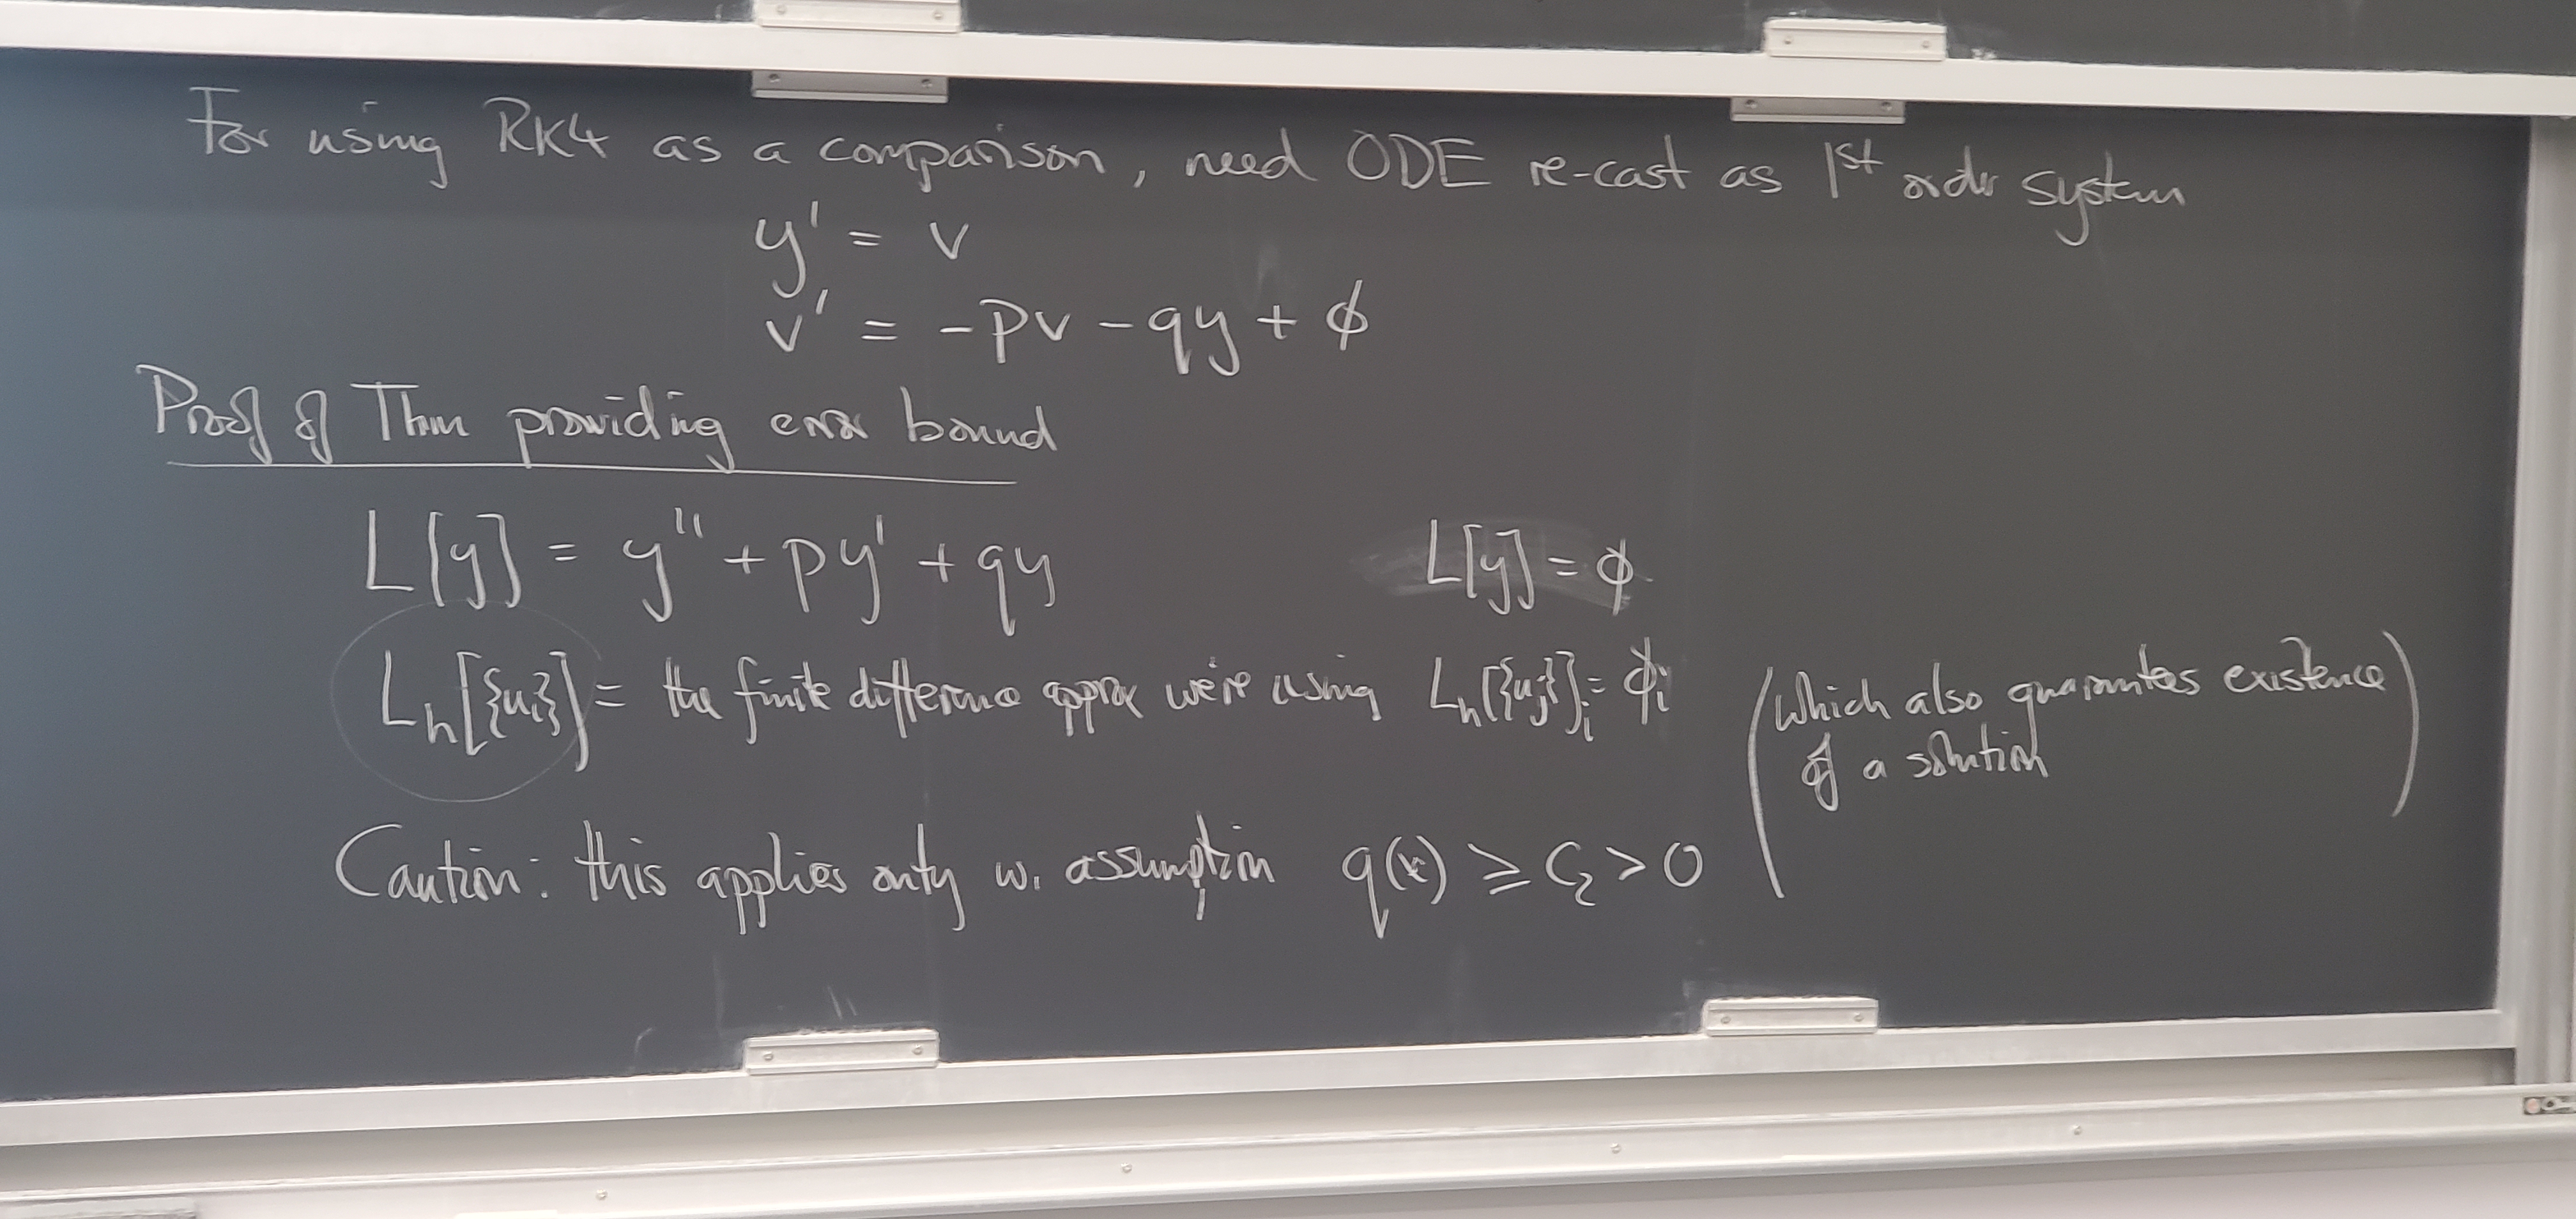 For using RK4 as a comparison, need ODE re-cast as 1st order system
y' = v
v' = -pv - qy + ϕ
Proof of Thm providing error bound
L[y] = y'' + py' + qy L[y] = ϕ
L_h[{u_i}] = the finite difference approx we're using L_h[{u_j}]_i = ϕ_i (which also guarantees existence
of a solution)
Caution: this applies only w. assumption q(x) ≥ C_2 > 0